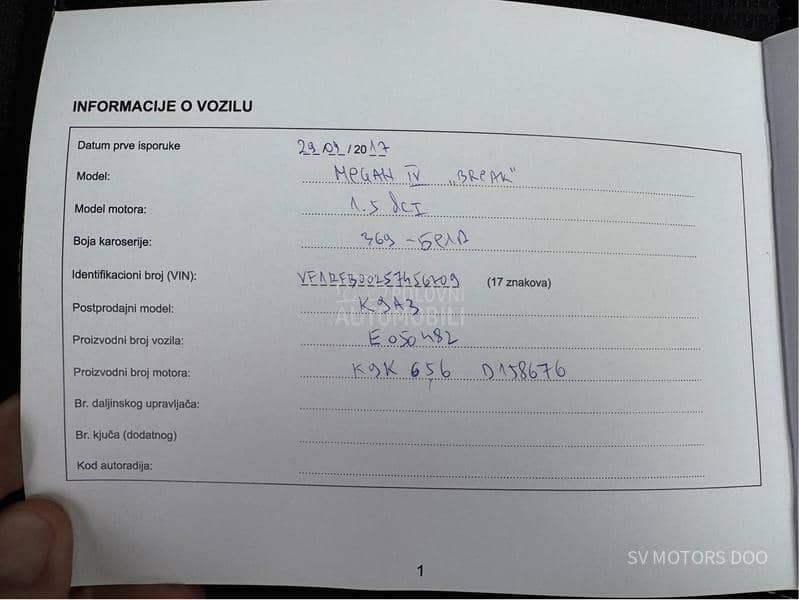 INFORMACIJE O VOZILU
Datum prve isporuke 29.09./2017
Model: MEGAN IV „BREAK“
Model motora: 1.5 dCI
Boja karoserije: 369 - БЕЛА
Identifikacioni broj (VIN): VF1RFB00257456709 (17 znakova)
POLOVNI
AUTOMOBILI
Postprodajni model: K9A3
Proizvodni broj vozila: E050482
Proizvodni broj motora: K9K 656 D158676
Br. daljinskog upravljača:
Br. kjuča (dodatnog)
Kod autoradija:
SV MOTORS DOO
1